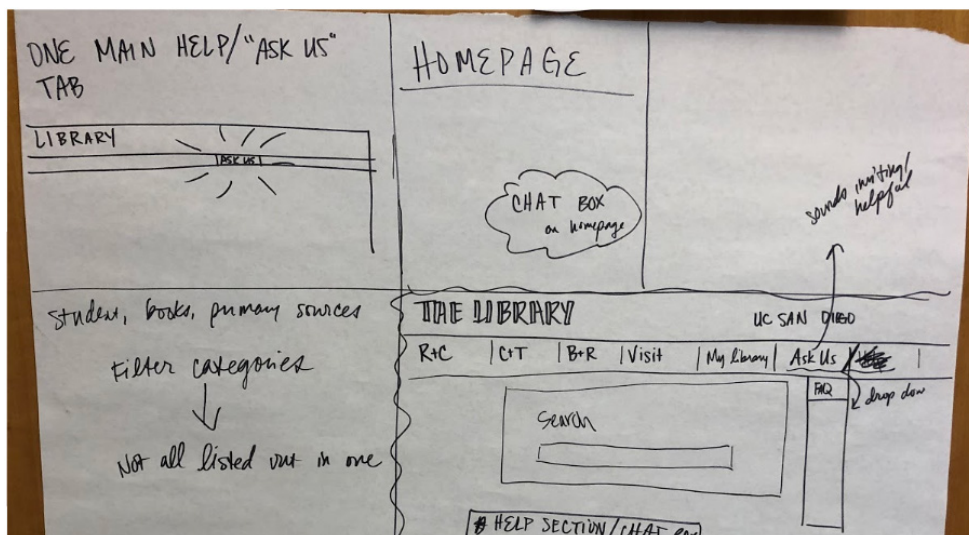 ONE MAIN HELP/"ASK US"
TAB
LIBRARY
ASK US
HOMEPAGE
CHAT BOX
on homepage
sounds inviting/
helpful
Student, books, primary sources
Filter categories
Not all listed out in one
THE LIBRARY
UC SAN DIEGO
R+C | C+T | B+R | Visit | My library | Ask Us
FAQ
drop down
Search
HELP SECTION/CHAT BOX